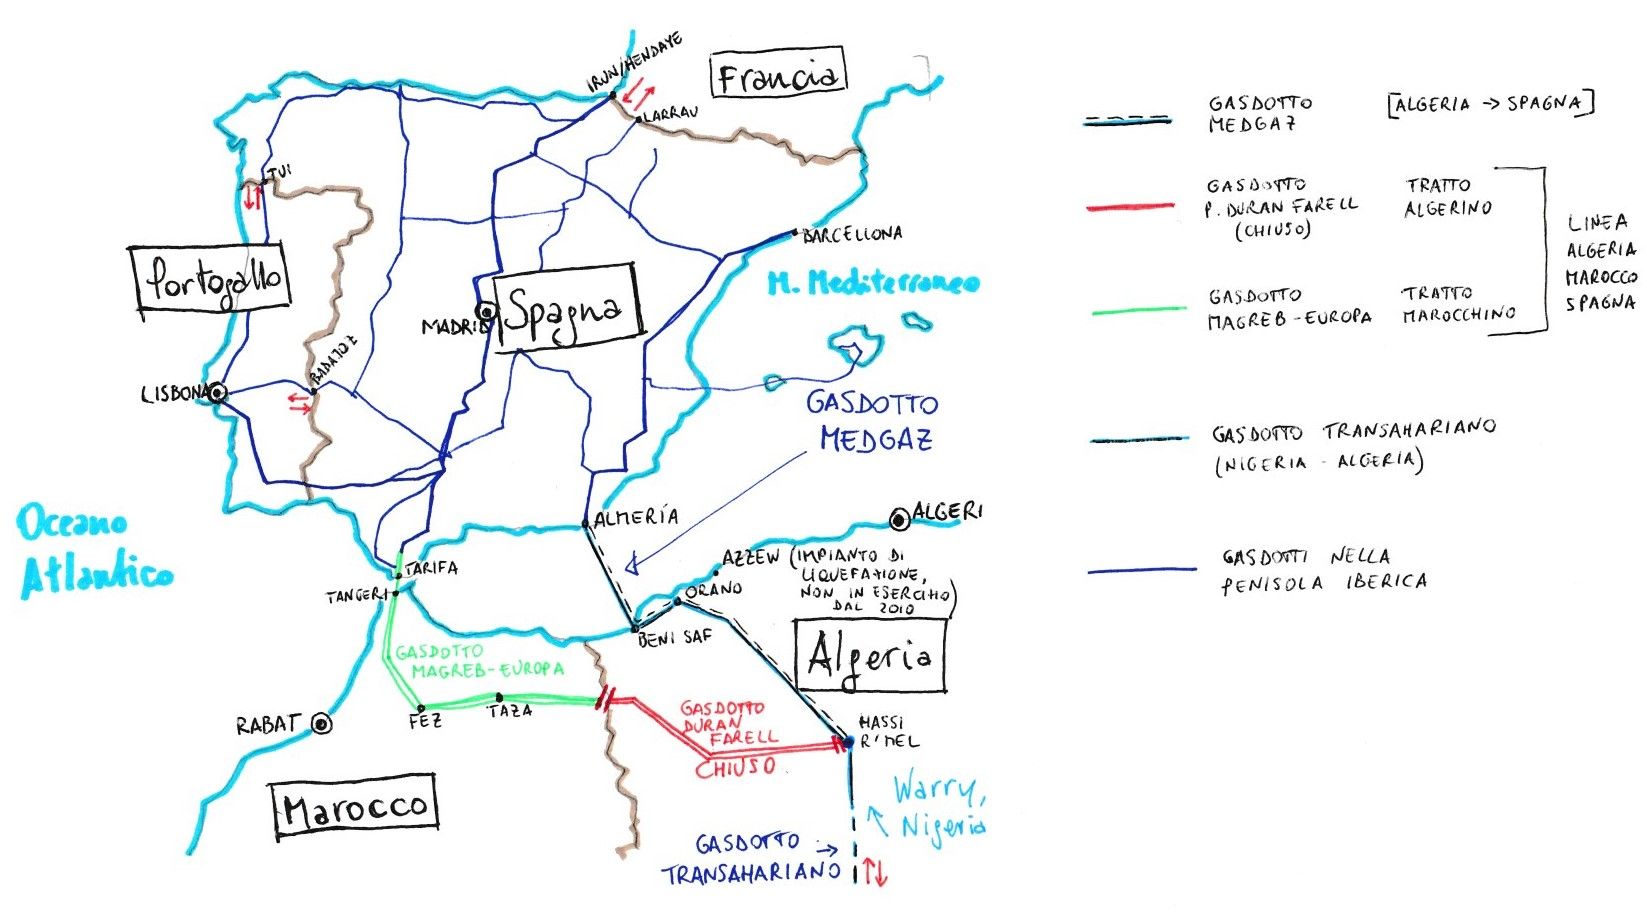 IRUN/HENDAYE
Francia
LARRAU
TUI
BARCELLONA
Portogallo
M. Mediterraneo
Spagna
MADRID
BADAJOZ
LISBONA
GASDOTTO
MEDGAZ
Oceano
Atlantico
ALMERÍA
ALGERI
TARIFA
TANGERI
AZZEW (IMPIANTO DI
LIQUEFAZIONE,
NON IN ESERCIZIO
DAL 2010)
ORANO
BENI SAF
Algeria
GASDOTTO
MAGREB-EUROPA
FEZ
TAZA
RABAT
GASDOTTO
DURAN
FARELL
CHIUSO
HASSI
R'MEL
Marocco
Warry,
Nigeria
GASDOTTO
TRANSAHARIANO
GASDOTTO
MEDGAZ
[ALGERIA -> SPAGNA]
GASDOTTO
P. DURAN FARELL
(CHIUSO)
TRATTO
ALGERINO
GASDOTTO
MAGREB-EUROPA
TRATTO
MAROCCHINO
LINEA
ALGERIA
MAROCCO
SPAGNA
GASDOTTO TRANSAHARIANO
(NIGERIA - ALGERIA)
GASDOTTI NELLA
PENISOLA IBERICA